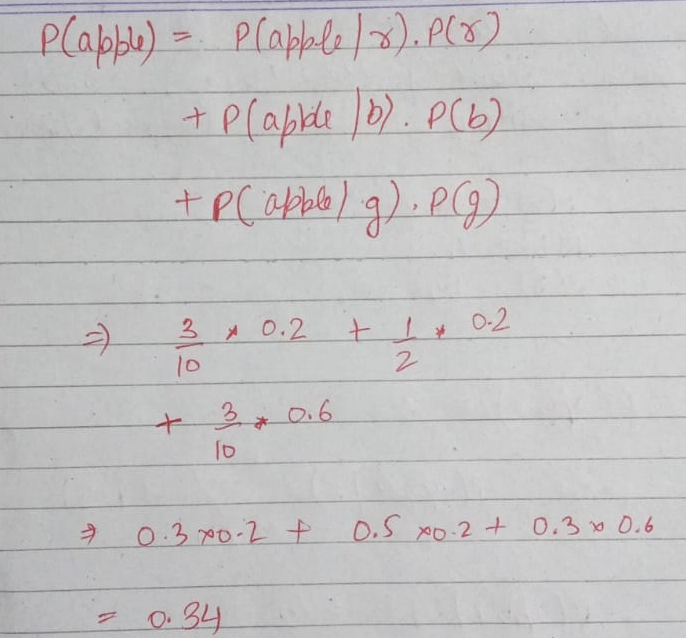 P(apple) = P(apple/r).P(r)
+ P(apple/b).P(b)
+ P(apple/g).P(g)
⇒ 3/10 * 0.2 + 1/2 * 0.2
+ 3/10 * 0.6
⇒ 0.3×0.2 + 0.5×0.2 + 0.3×0.6
= 0.34